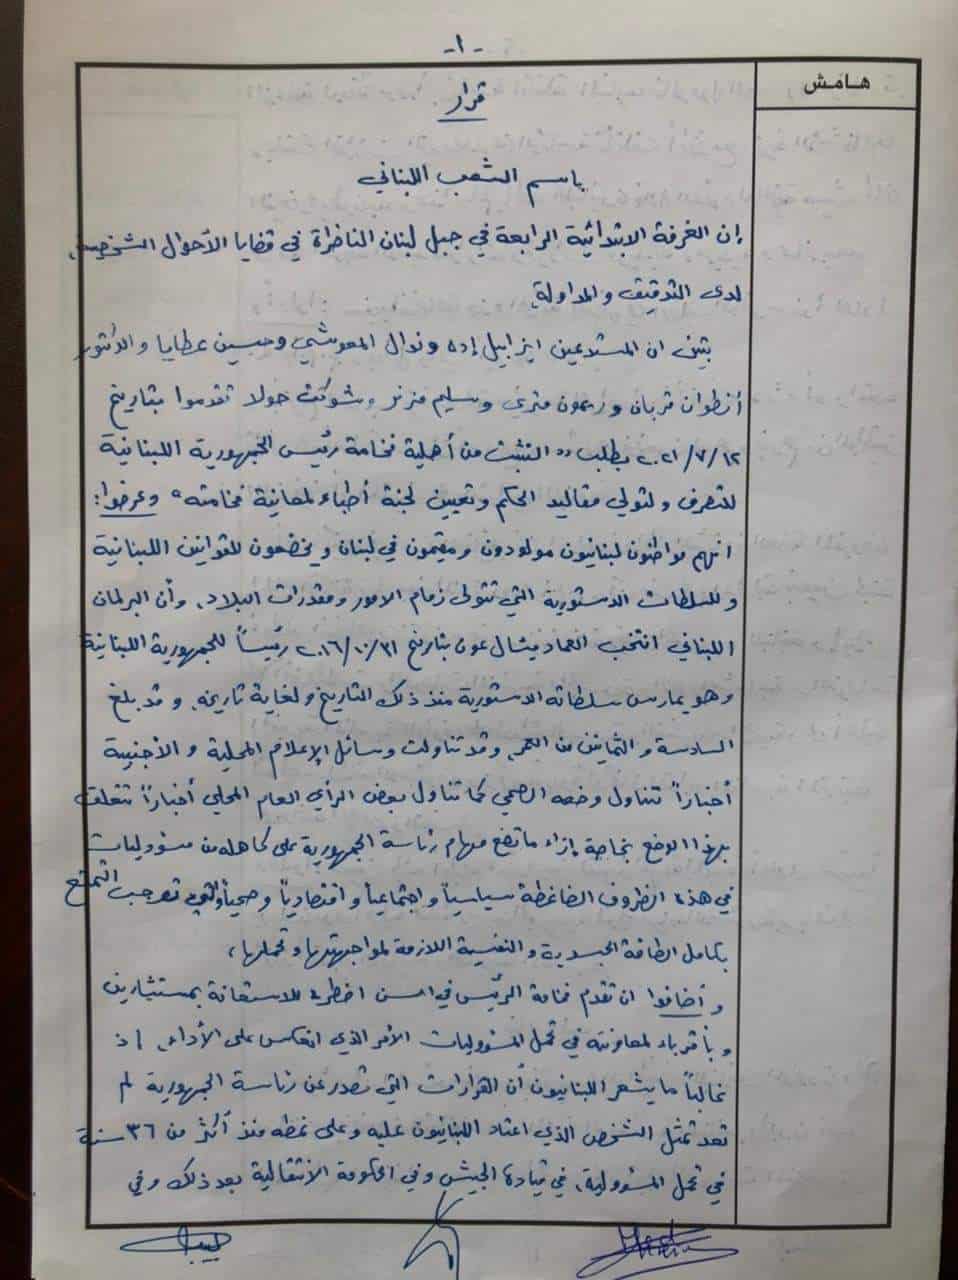 -١-
هامش
قرار
باسم الشعب اللبناني
إن الغرفة الابتدائية الرابعة في جبل لبنان الناظرة في قضايا الأحوال الشخصية،
لدى التدقيق والمداولة،
يتبين ان المستدعين ايزابيل إده وندال المعوشي وحسين عطايا والدكتور
أنطوان قربان وريمون متري وسليم مزنر وشوكت حولا تقدموا بتاريخ
١٢/٧/٢٠٢١ بطلب "التثبت من أهلية فخامة رئيس الجمهورية اللبنانية
للتصرف ولتولي مقاليد الحكم وتعيين لجنة أطباء لمعاينة فخامته" وعرضوا:
انهم مواطنون لبنانيون مولودون ومقيمون في لبنان ويخضعون للقوانين اللبنانية
وللسلطات الدستورية التي تتولى زمام الامور ومقدرات البلاد، وأن البرلمان
اللبناني انتخب العماد ميشال عون بتاريخ ٣١/١٠/٢٠١٦ رئيساً للجمهورية اللبنانية
وهو يمارس سلطاته الدستورية منذ ذلك التاريخ ولغاية تاريخه، وقد بلغ
السادسة والثمانين من العمر، وقد تناولت وسائل الإعلام المحلية والأجنبية
أخباراً تتناول وضعه الصحي كما تناول بعض الرأي العام المحلي أخباراً تتعلق
بهذا الوضع بخاصة إزاء ما تضع مهام رئاسة الجمهورية على كاهله من مسؤوليات
في هذه الظروف الضاغطة سياسياً واجتماعياً واقتصادياً وصحياً والتي توجب التمتع
بكامل الطاقة الجسدية والنفسية اللازمة لمواجهتها وتحملها،
وأضافوا ان تقدم فخامة الرئيس في السن اضطره للاستعانة بمستشارين
وبأقرباء لمعاونته في تحمل المسؤوليات الأمر الذي انعكس على الأداء، إذ
غالباً ما يشعر اللبنانيون أن القرارات التي تصدر عن رئاسة الجمهورية لم
تعد تمثل الشخص الذي اعتاد اللبنانيون عليه وعلى نمطه منذ أكثر من ٣٦ سنة
في تحمل المسؤولية، في قيادة الجيش وفي الحكومة الانتقالية بعد ذلك وفي